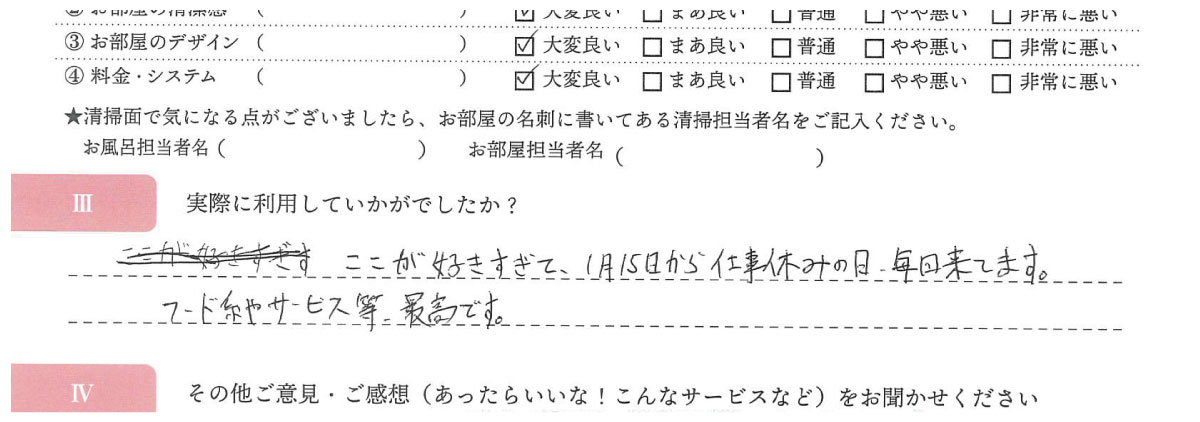 ② お部屋の清潔感 ( ) ☑ 大変良い □ まあ良い □ 普通 □ やや悪い □ 非常に悪い
③ お部屋のデザイン ( ) ☑ 大変良い □ まあ良い □ 普通 □ やや悪い □ 非常に悪い
④ 料金・システム ( ) ☑ 大変良い □ まあ良い □ 普通 □ やや悪い □ 非常に悪い
★清掃面で気になる点がございましたら、お部屋の名刺に書いてある清掃担当者名をご記入ください。
お風呂担当者名 ( ) お部屋担当者名 ( )
Ⅲ 実際に利用していかがでしたか？
ここが好きすぎす ここが好きすぎて、1月15日から仕事休みの日、毎回来てます。
フード系やサービス等、最高です。
Ⅳ その他ご意見・ご感想（あったらいいな！こんなサービスなど）をお聞かせください